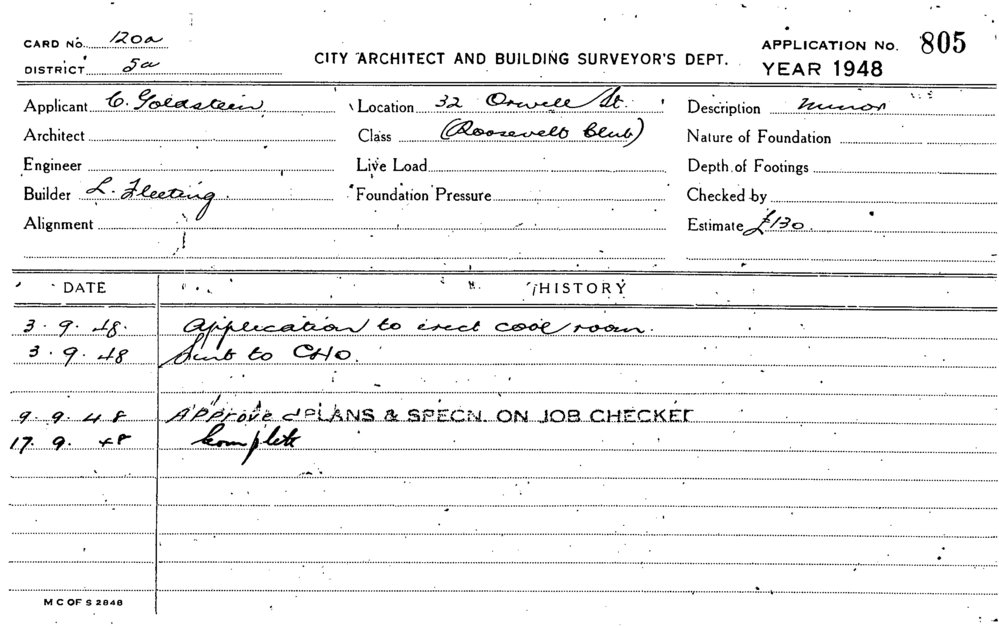 CARD No. 120a
CITY ARCHITECT AND BUILDING SURVEYOR'S DEPT.
APPLICATION No. 805
DISTRICT 5a
YEAR 1948
Applicant C. Goldstein Location 32 Orwell St. Description minor
Architect Class (Roosevelt Club) Nature of Foundation
Engineer Live Load Depth of Footings
Builder L. Fleeting. Foundation Pressure Checked by
Alignment Estimate £130.
DATE HISTORY
3. 9. 48. Application to erect cool room.
3. 9. 48 Sent to CHO.
9. 9. 48 Approved PLANS & SPECN. ON JOB CHECKED
17. 9. 48 Complete
M C OF S 2848